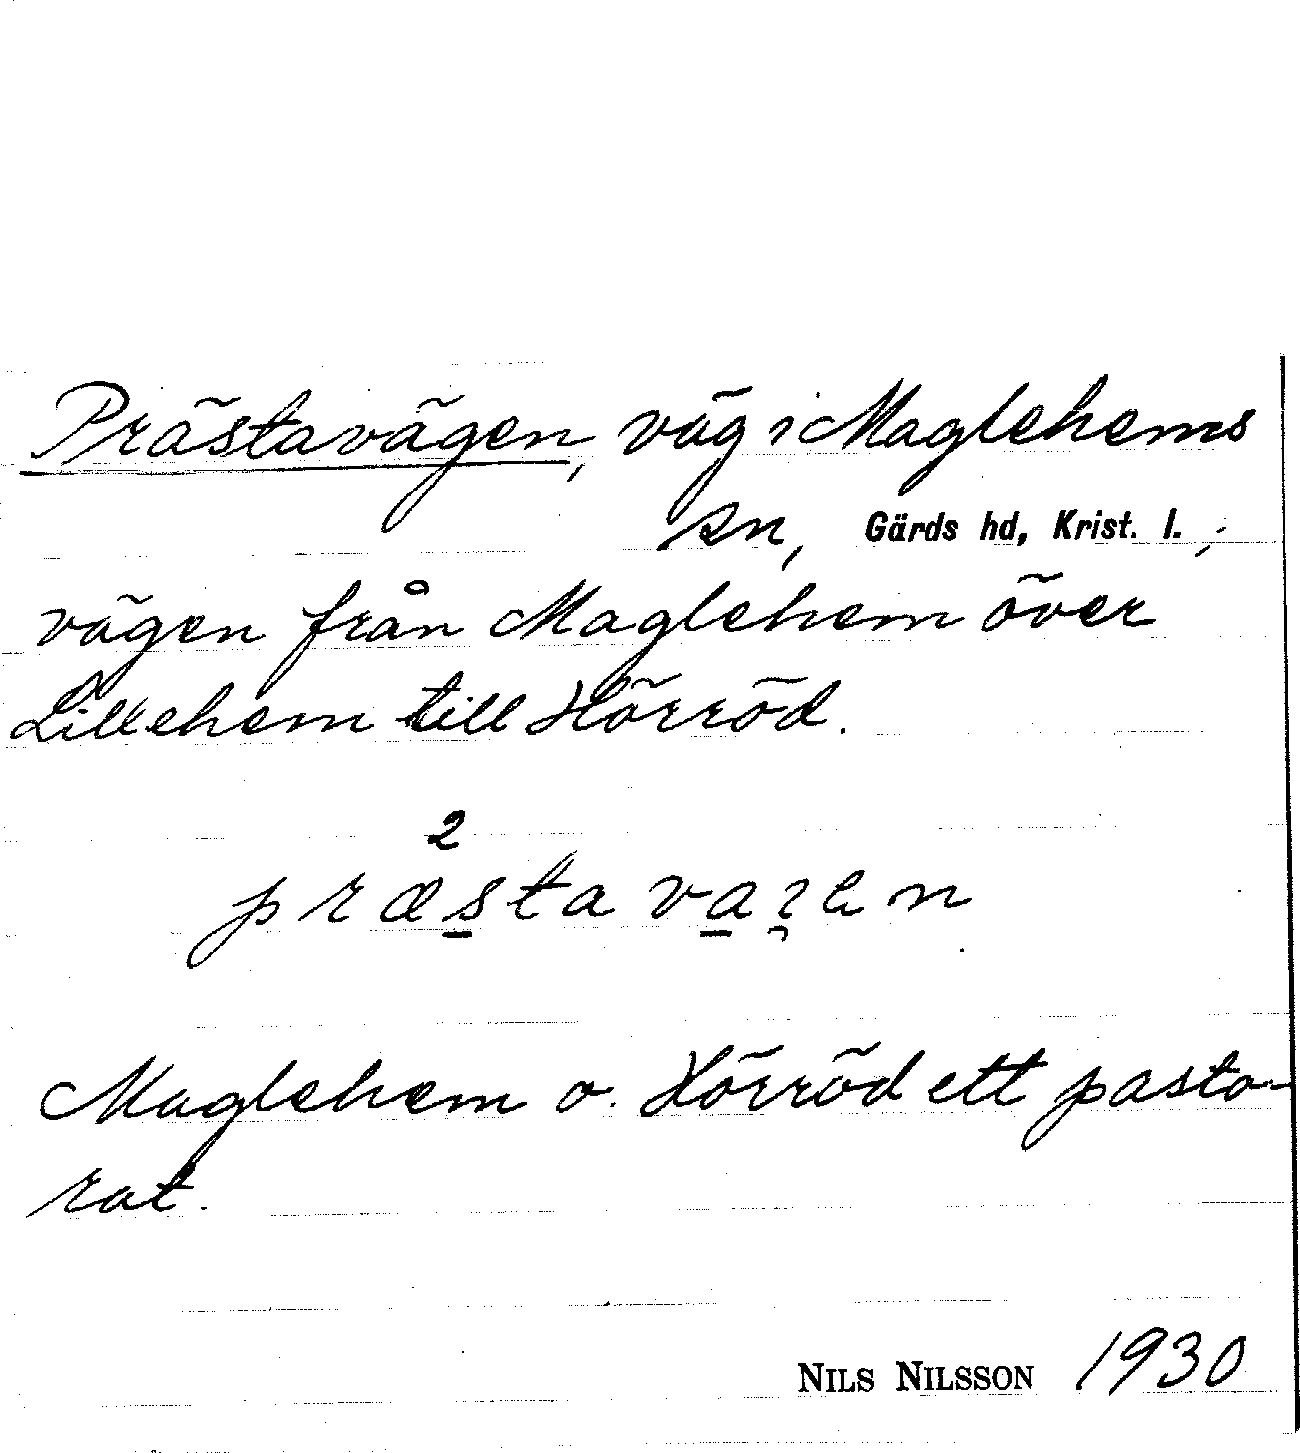 Prästavägen, väg i Maglehems
sn, Gärds hd, Krist. l.;
vägen från Maglehem över
Lillehem till Hörröd.
2
Maglehem o. Hörröd ett pasto-
rat.
NILS NILSSON 1930